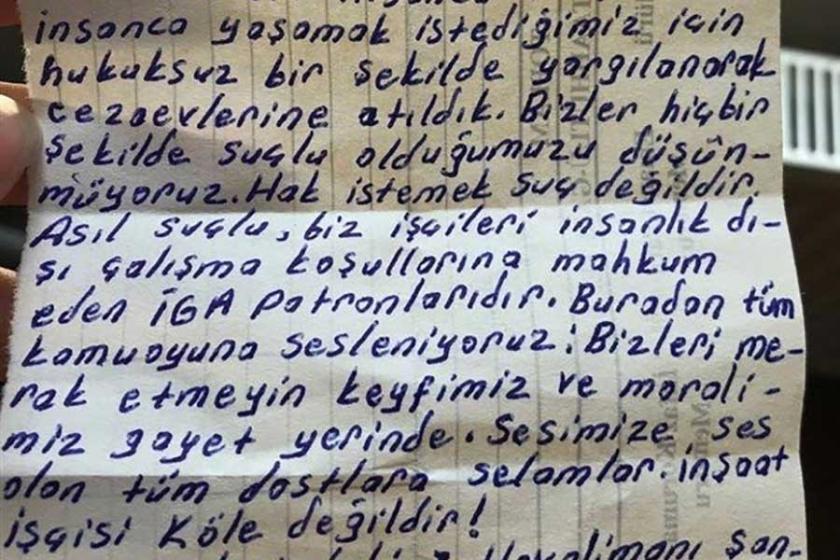 insanca yaşamak istediğimiz için
hukuksuz bir şekilde yargılanarak
cezaevlerine atıldık. Bizler hiçbir
şekilde suçlu olduğumuzu düşün-
müyoruz. Hak istemek suç değildir.
Asıl suçlu, biz işçileri insanlık dı-
şı çalışma koşullarına mahkum
eden İGA Patronlarıdır. Buradan tüm
kamuoyuna sesleniyoruz: Bizleri me-
rak etmeyin keyfimiz ve morali-
miz gayet yerinde. Sesimize ses
olan tüm dostlara selamlar. inşaat
işçisi Köle değildir!